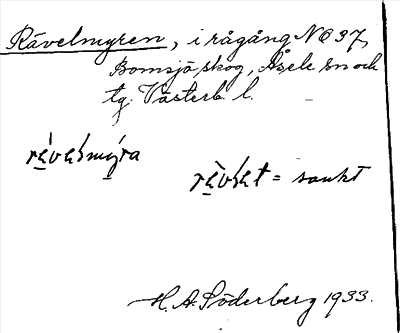 Rävelmyren, i rågång No 37,
Bomsjö skog, Åsele sn och
tg. Västerb. l.
rä́velmýra
rä̀vlet = sankt
H. A. Söderberg 1933.